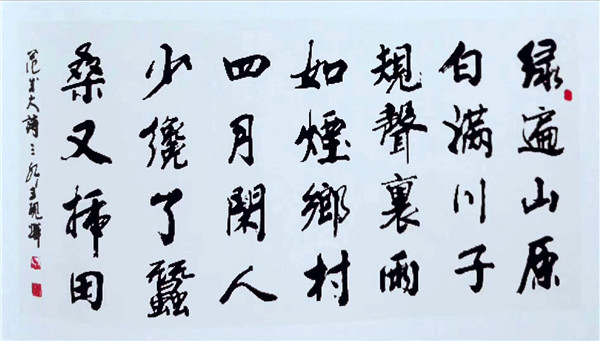 绿遍山原
白满川子
規聲裏雨
如煙鄉村
四月閑人
少纔了蠶
桑又插田
范成大詩